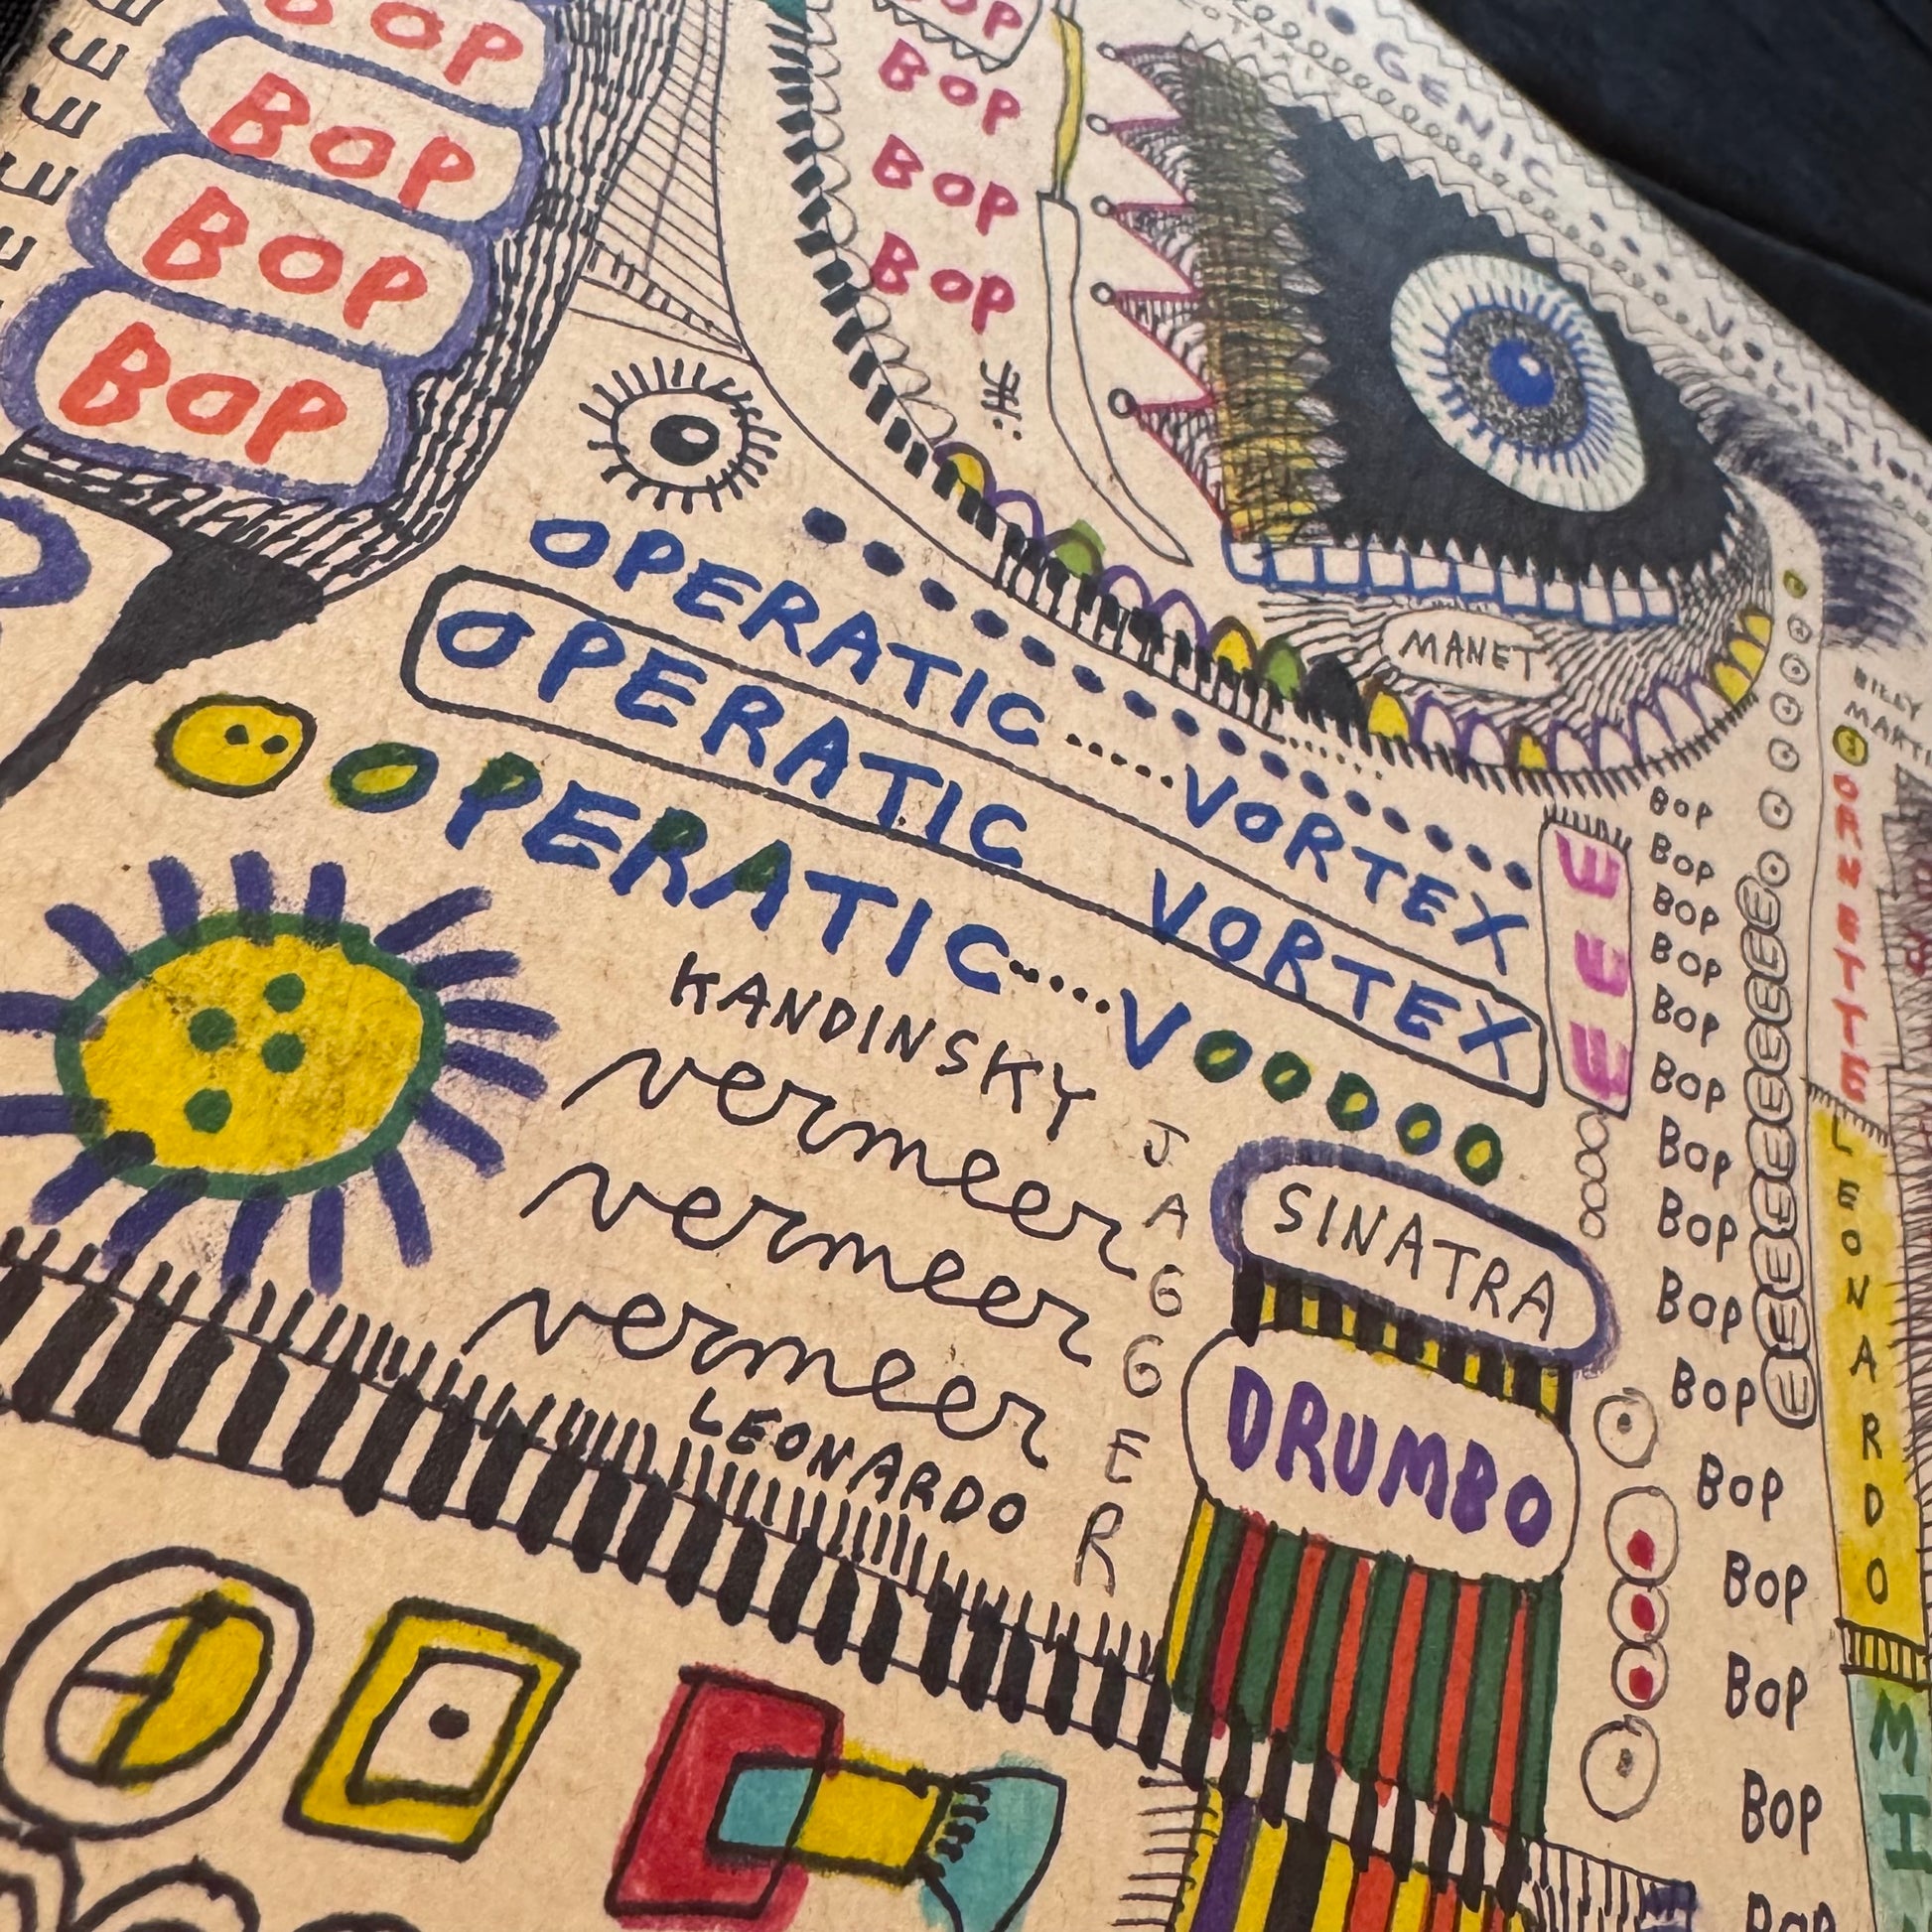 BOP
BOP
BOP
BOP
BOP
BOP
BOP
BOP
GENIC
MANET
BILLY
OPERATIC.....VORTEX
OPERATIC VORTEX
OPERATIC.....VOODOO
KANDINSKY
vermeer
vermeer
vermeer
LEONARDO
JAGGER
SINATRA
DRUMBO
EEE
BOP
BOP
BOP
BOP
BOP
BOP
BOP
BOP
BOP
BOP
BOP
BOP
BOP
BOP
ORNETTE
LEONARDO